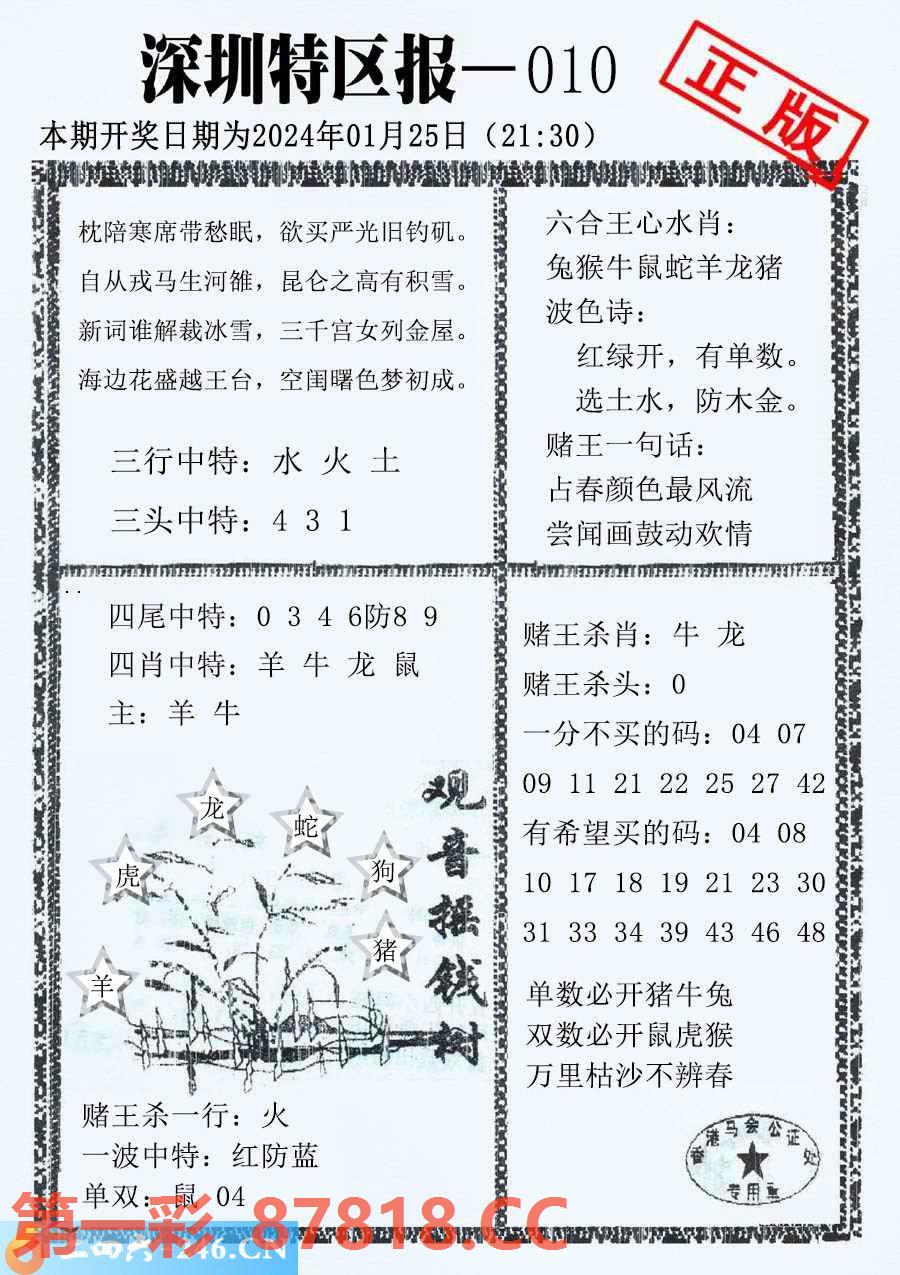 深圳特区报—010
正版
本期开奖日期为2024年01月25日（21:30）
枕陪寒席带愁眠，欲买严光旧钓矶。
自从戎马生河雒，昆仑之高有积雪。
新词谁解裁冰雪，三千宫女列金屋。
海边花盛越王台，空闺曙色梦初成。
三行中特：水 火 土
三头中特：4 3 1
六合王心水肖：
兔猴牛鼠蛇羊龙猪
波色诗：
红绿开，有单数。
选土水，防木金。
赌王一句话：
占春颜色最风流
尝闻画鼓动欢情
四尾中特：0 3 4 6防8 9
四肖中特：羊 牛 龙 鼠
主：羊 牛
龙
蛇
虎
狗
猪
羊
观音摇钱树
赌王杀一行：火
一波中特：红防蓝
单双：鼠 04
赌王杀肖：牛 龙
赌王杀头：0
一分不买的码：04 07
09 11 21 22 25 27 42
有希望买的码：04 08
10 17 18 19 21 23 30
31 33 34 39 43 46 48
单数必开猪牛兔
双数必开鼠虎猴
万里枯沙不辨春
香港马会公证处
专用章
第一彩 87818.CC
246.CN